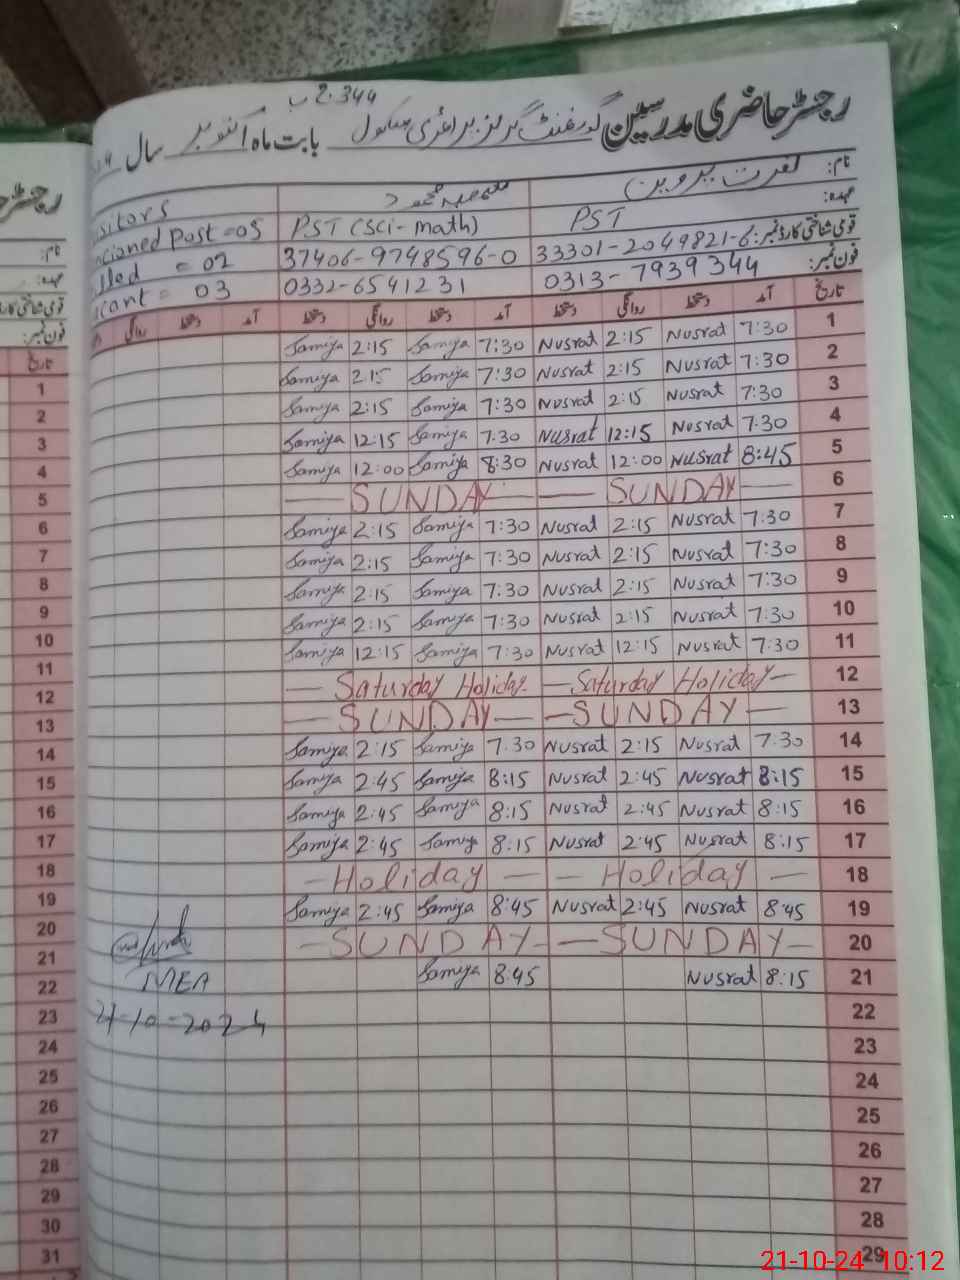 2.344 ب
رجسٹر حاضری مدرسین گورنمنٹ گرلز پرائمری سکول بابت ماہ اکتوبر سال
نام: نصرت پروین محمود
عہدہ: PST PST (Sci-math) visitors
قومی شناختی کارڈ نمبر: 33301-2049821-6 37406-9748596-0 ncioned Post =05
فون نمبر: 0313-7939344 0332-6541231 lled = 02
cant = 03
تاریخ آمد دستخط روانگی دستخط آمد دستخط روانگی دستخط آمد دستخط روانگی
Samiya 2:15 Samiya 7:30 Nusrat 2:15 Nusrat 7:30 1
Samiya 2:15 Samiya 7:30 Nusrat 2:15 Nusrat 7:30 2
Samiya 2:15 Samiya 7:30 Nusrat 2:15 Nusrat 7:30 3
Samiya 12:15 Samiya 7:30 Nusrat 12:15 Nusrat 7:30 4
Samiya 12:00 Samiya 8:30 Nusrat 12:00 Nusrat 8:45 5
— SUNDAY — — SUNDAY — 6
Samiya 2:15 Samiya 7:30 Nusrat 2:15 Nusrat 7:30 7
Samiya 2:15 Samiya 7:30 Nusrat 2:15 Nusrat 7:30 8
Samiya 2:15 Samiya 7:30 Nusrat 2:15 Nusrat 7:30 9
Samiya 2:15 Samiya 7:30 Nusrat 2:15 Nusrat 7:30 10
Samiya 12:15 Samiya 7:30 Nusrat 12:15 Nusrat 7:30 11
— Saturday Holiday — Saturday Holiday — 12
— SUNDAY — — SUNDAY — 13
Samiya 2:15 Samiya 7:30 Nusrat 2:15 Nusrat 7:30 14
Samiya 2:45 Samiya 8:15 Nusrat 2:45 Nusrat 8:15 15
Samiya 2:45 Samiya 8:15 Nusrat 2:45 Nusrat 8:15 16
Samiya 2:45 Samiya 8:15 Nusrat 2:45 Nusrat 8:15 17
— Holiday — — Holiday — 18
Samiya 2:45 Samiya 8:45 Nusrat 2:45 Nusrat 8:45 19
— SUNDAY — — SUNDAY — 20
Samiya 8:45 Nusrat 8:15 21
MEA
21-10-2024
22
23
24
25
26
27
28
29
رجسٹر
نام:
عہدہ:
قومی شناختی کارڈ
فون نمبر:
تاریخ
1
2
3
4
5
6
7
8
9
10
11
12
13
14
15
16
17
18
19
20
21
22
23
24
25
26
27
28
29
30
31
21-10-24 10:12